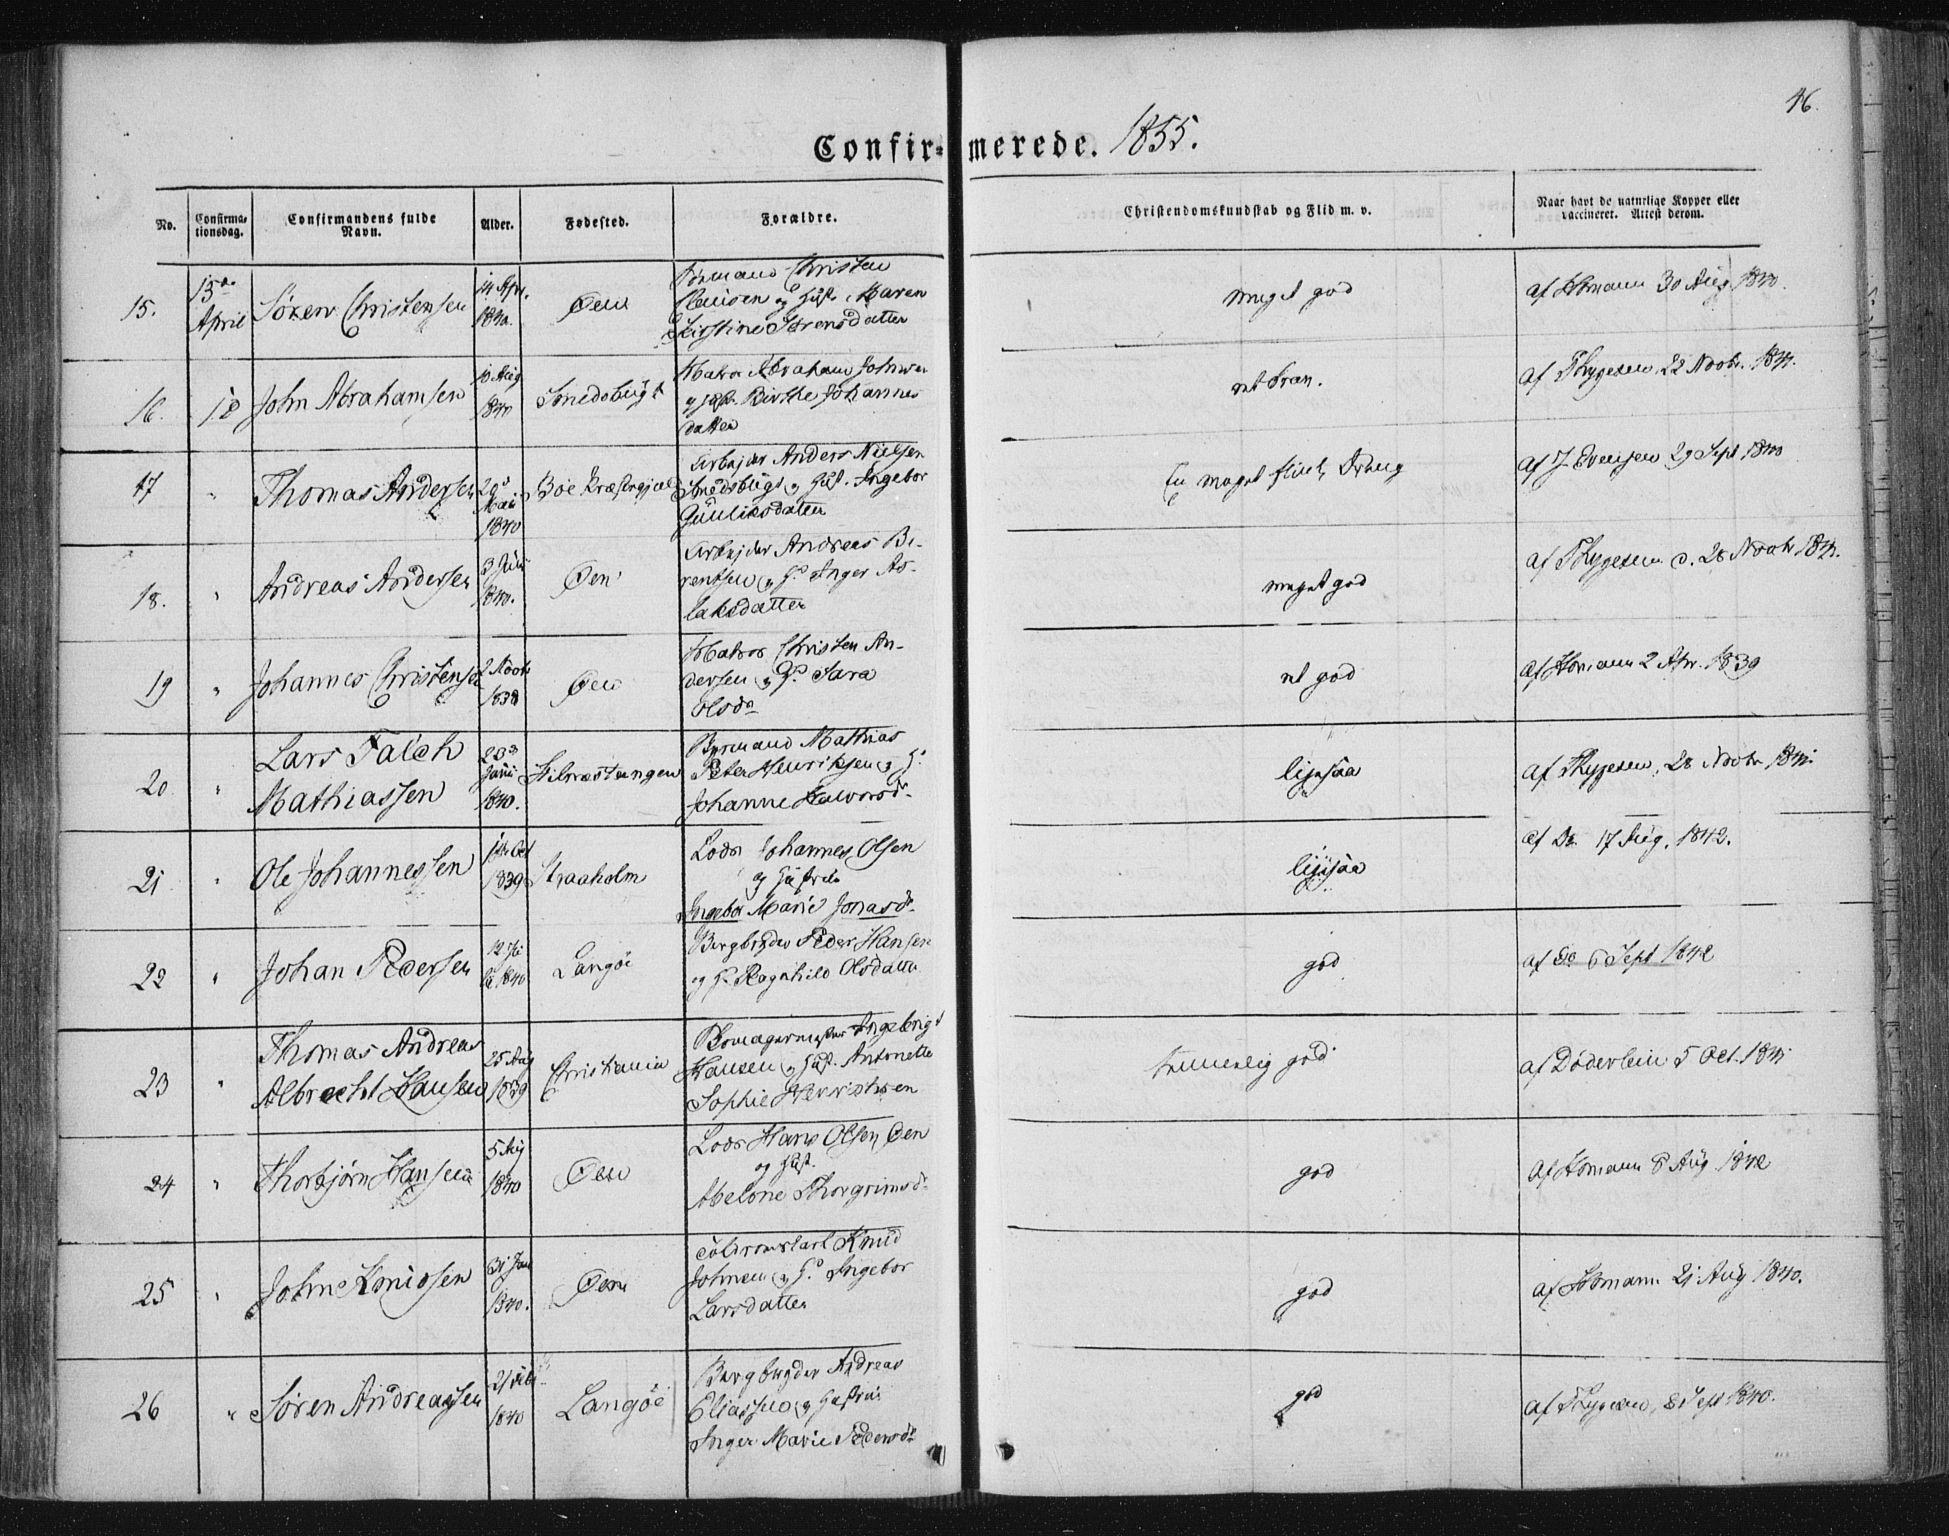 46.
Confir=merede. 1855.
No.
Confirma=
tionsdag.
Confirmandens fulde
Navn.
Alder.
Fødested.
Forældre.
Christendomskundskab og Flid m. v.
Naar havt de naturlige Kopper eller
vaccineret. Attest derom.
15.
15de
April
Sören Christensen
14 Apr.
1840.
Öen
Christen
og Hust. Maren
Kirstine Sörensdatter
meget god
af Homann 30 Aug 1840.
16.
John Abrahamsen
Aug
1840
Smedsbugt
Matros Abraham Johnsen
og Hust. Birthe Johannes
datter
af Thygesen 22 Novbr. 1841.
17
"
Thomas Andersen
29
Mai
1840
Arbejder Anders Nielsen
Smedsbugt og Hust. Ingebor
Gunliksdatter
En meget flink Dreng
af J. Evensen 29 Sept 1840
18.
"
Andreas Andersen
3 Juli
1840.
Öen
Arbejder Andreas Be-
rentsen og H. Inger As-
laksdatter
meget god
af Thygesen d. 28 Novbr 1841.
19
"
Johannes Christensen
2 Novbr
1838
Öen
Matros Christen An-
dersen og H. Sara
Olsdr
god
af Homann 2 1839
20
"
Lars Falch
Mathiassen
23
Juni
1840.
Mathias
Peter Henriksen og H.
Johanne Halvorsdr.
ligesaa
af Thygesen, 28 Novbr 1841.
21
"
Ole Johannessen
Oct
1839
Straaholm
Lods Johannes Olsen
og Hustru
Ingebor Marie Jonasdr.
ligesaa
af Do 17 Aug. 1842.
22
"
Johan Pedersen
12 Ju
li 1840
Langöe
Bergbryder Peder Hansen
og H. Ragnhild Olsdatter
god
af Do 6 Sept 1842
23
"
Thomas Andreas
Albrecht Hansen
25 Aug
1839
Christiania
Ingebrigt
Hansen og Hust. Antonette
Sophie
temmelig god
af Döderlein 5 Oct. 1841
24
"
Thorbjörn Hansen
5 Aug
1840
Öen
Lods Hans Olsen, Öen
og Hust.
Abelone Thorgrimsdr.
god
af Homann 8 Aug 1842
25
"
John Knudsen
31 Jan
1840.
Öen
Knud
Johnsen og H. Ingebor
Larsdatter
god
af Homann 21 Aug 1840.
26
"
Sören Andreassen
1840
Langöe
Bergbryder Andreas
Eliassen og Hustru
Inger Marie Pedersdr
god
af Thygesen, 8 Sept 1840.